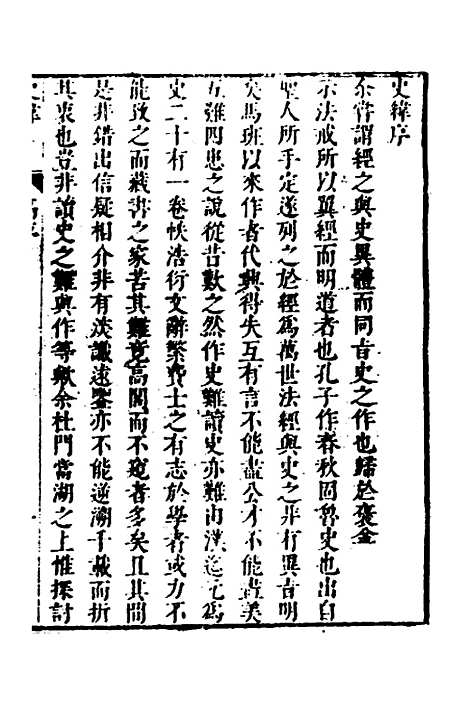 史緯序
余嘗謂經之與史異體而同旨史之作也歸於褒金
示法戒所以翼經而明道者也孔子作春秋固魯史也出自
聖人所手定遂列之於經為萬世法經與史之非有異旨明
矣馬班以來作者代興得失互有言不能盡公才不能盡美
五難四患之說從昔歎之然作史難讀史亦難由漢迄元為
史二十有一卷帙浩衍文辭繁費士之有志於學者或力不
能致之而藏書之家苦其難竟高閣而不窺者多矣且其間
是非錯出信疑相介非有淡識遠鑒亦不能逆溯千載而折
其衷也豈非讀史之難與作等歟余杜門當湖之上惟探討
史緯